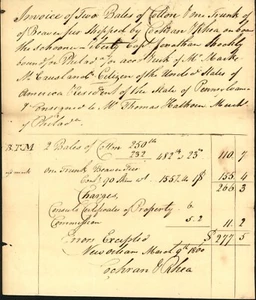 Invoice of Two Bales of Cotton & one Trunk
of Beaver furr Shipped by Cochran & Rhea on board
the Schooner Liberty Capt Jonathan
bound for Philada for acct & risk of Mr
Citizen of the United States of
America & Resident of the State of Pennsylvania
& Consigned to Mr Thomas Calhoun Mercht
of Philada
2 Bales of Cotton 250 lb
232 482 lb 23 110 7
one Trunk Beaver
155 4
266 3
Charges,
Consuls Certificates of Property 6
Commission 5.2
11 2
Errors Excepted $ 277 5
New Orleans March 9th 1800
Cochran & Rhea